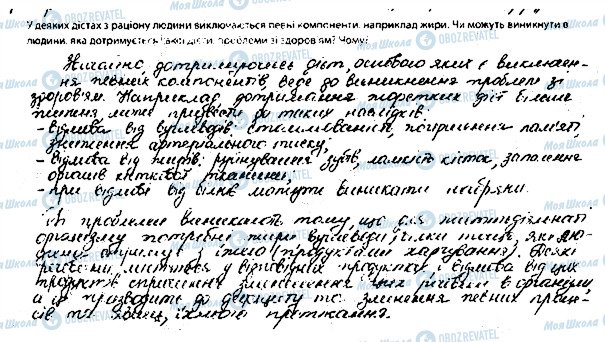 У деяких дієтах з раціону людини виключаються певні компоненти, наприклад жири. Чи можуть виникнути в
людини, яка дотримується такої дієти, проблеми зі здоров'ям? Чому?
дотримуючись дієт, основою яких є виключен-
ня певних компонентів веде до виникнення проблем зі
здоров'ям. Наприклад дотримання жорстких дієт більше
тижня може призвести до таких наслідків:
- відмова від вуглеводів: стомлюваність, погіршення пам'яті,
зниження артеріального тиску;
- відмова від жирів: руйнування зубів, ламкість кісток, запалення
органів тканини;
- при відмові від білків можуть виникати набряки.
Ці проблеми виникають тому, що для життєдіяльності
організму потрібні жири вуглеводи білки тощо, які лю-
дина отримує з їжею (продуктами харчування). Деякі
речовини містяться у відповідних продуктах і відмова від цих
продуктів спричинює зменшення цих речовин в організмі
а це призводить до дефіциту та змінення певних проце-
сів та їхнього протікання.